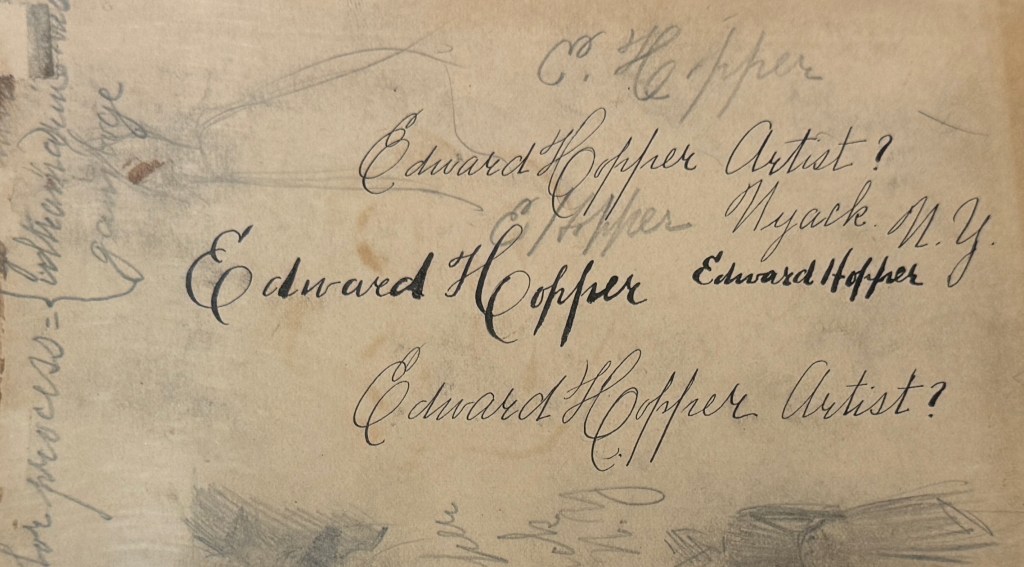 E. Hopper
Edward Hopper Artist?
E Hopper
Nyack. N.Y.
Edward Hopper
Edward Hopper
Edward Hopper Artist?
process =
gamboge
N. Y